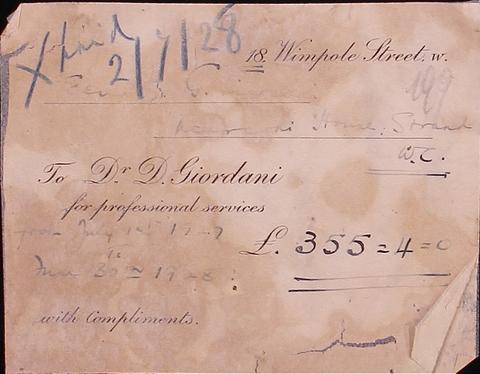 X paid
2/7/28
18. Wimpole Street. W.
House, Strand
W.C.
To Dr D. Giordani
for professional services
from July 1st 19-7
to
June 30th 19-8
£. 355 = 4 = 0
with Compliments.